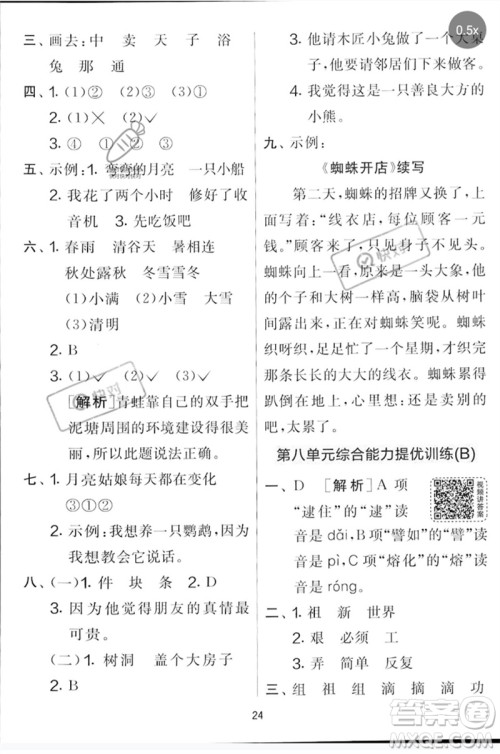 0.5x
三、画去:中 卖 天 子 浴
兔 那 通
四、1. (1)② (2)③ (3)①
2. (1)✕ (2)✓
3. ④ ① ② ③ ⑤
五、示例:1. 弯弯的月亮 一只小船
2. 我花了两个小时 修好了收
音机 3. 先吃饭吧
六、1. 春雨 清谷天 暑相连
秋处露秋 冬雪雪冬
(1)小满 (2)小雪 大雪
(3)清明
2. B
3. (1)✕ (2)✓ (3)✓
[解析]青蛙靠自己的双手把
泥塘周围的环境建设得很
美丽。
七、1. 月亮姑娘每天都在变化
③①②
2. 示例:我想养一只鹦鹉,因
为我想教会它说话。
八、(一)1. 件 块 条 2. D
3. 因为他觉得朋友的真情最
可贵。
(二)1. 树洞 盖个大房子
2. B
3. 他请木匠小兔做了一个大桌
子,还请邻居们用他的大桌
子。
4. 我觉得这是一只善良大方的
小熊。
九、示例:
《蜘蛛开店》续写
第二天,蜘蛛的招牌又换了,上
面写着:“线衣店,每位顾客一元
钱。”顾客来了,只见身子不见头。
蜘蛛向上一看,原来是一头大象,他
的个子和大树一样高,脑袋从树叶
间露出来,对着蜘蛛笑呢。蜘蛛织
呀织,足足忙了两个星期,才织完
那条长长的大大的线衣。蜘蛛累得
趴倒在地上。
第八单元综合能力提优训练(B)
一、D [解析]A 项
“逮住”的“逮”读
音是 dǎi,B 项“譬如”的“譬”读
音是 pì,C 项“熔化”的“熔”读
音是 róng。
视频讲答案
二、1. 祖 新 世界
2. 艰 必须 工
3. 弄 简单 反复
三、组 祖 组 滴 摘 滴 功
24
答案圈
MXQE.COM